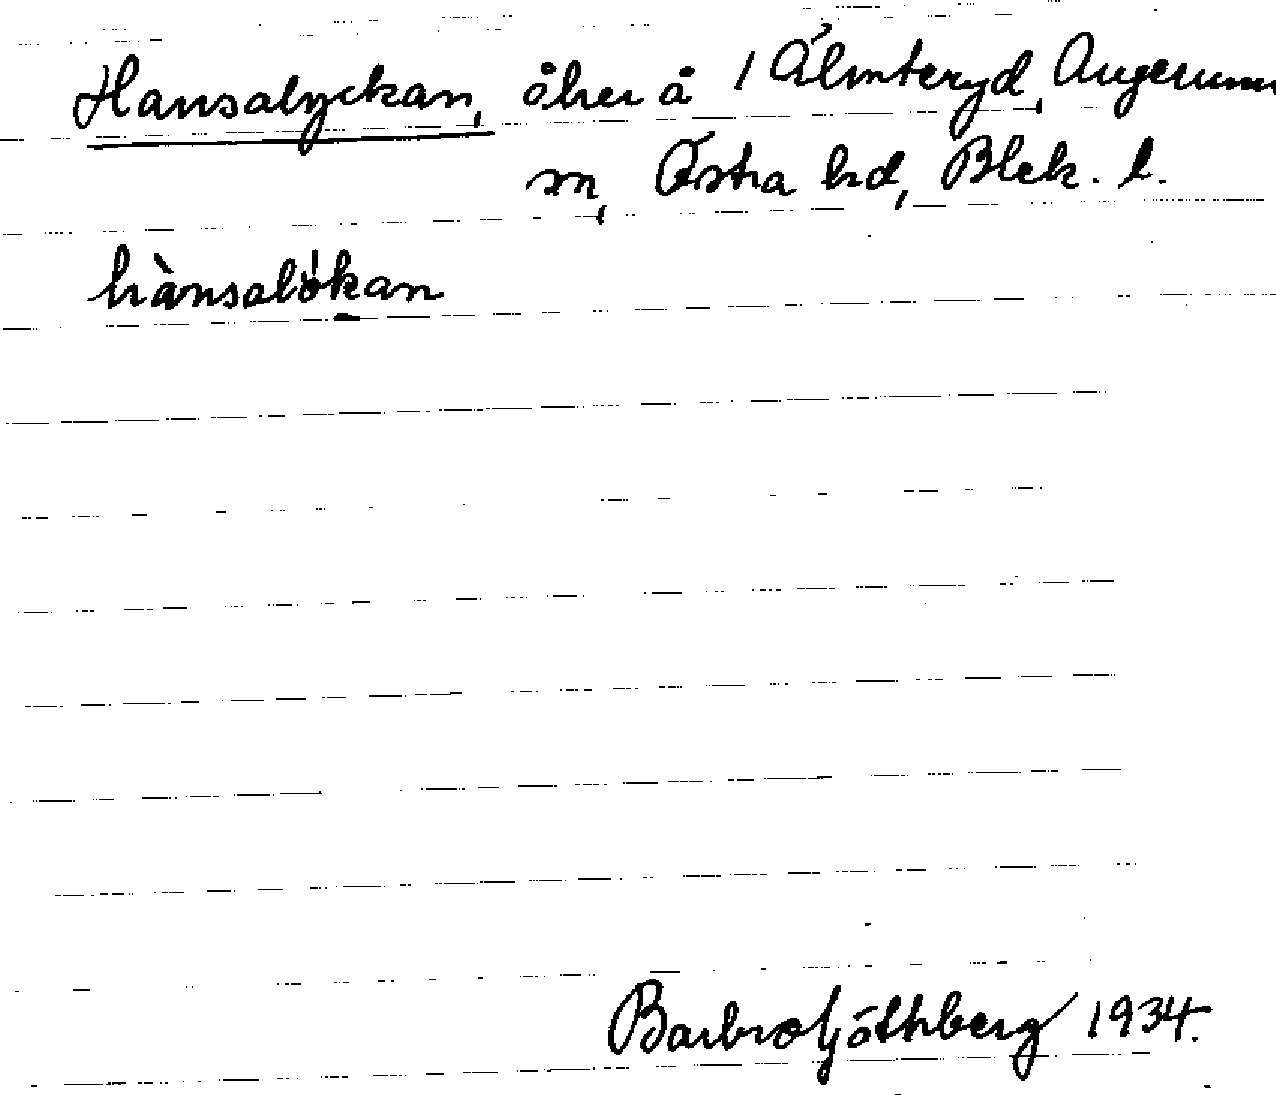 Hansalyckan, åker å 1 Älmteryd, Augerums
sn, Östra hd, Blek. l.
hànsalökan
Barbro Göthberg 1934.